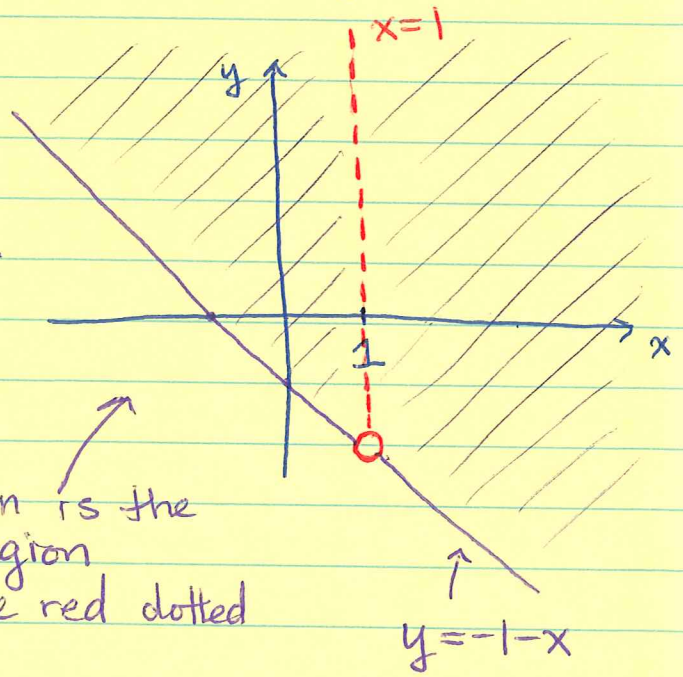 x=1
y
1
x
n is the
gion
e red dotted
y=-1-x